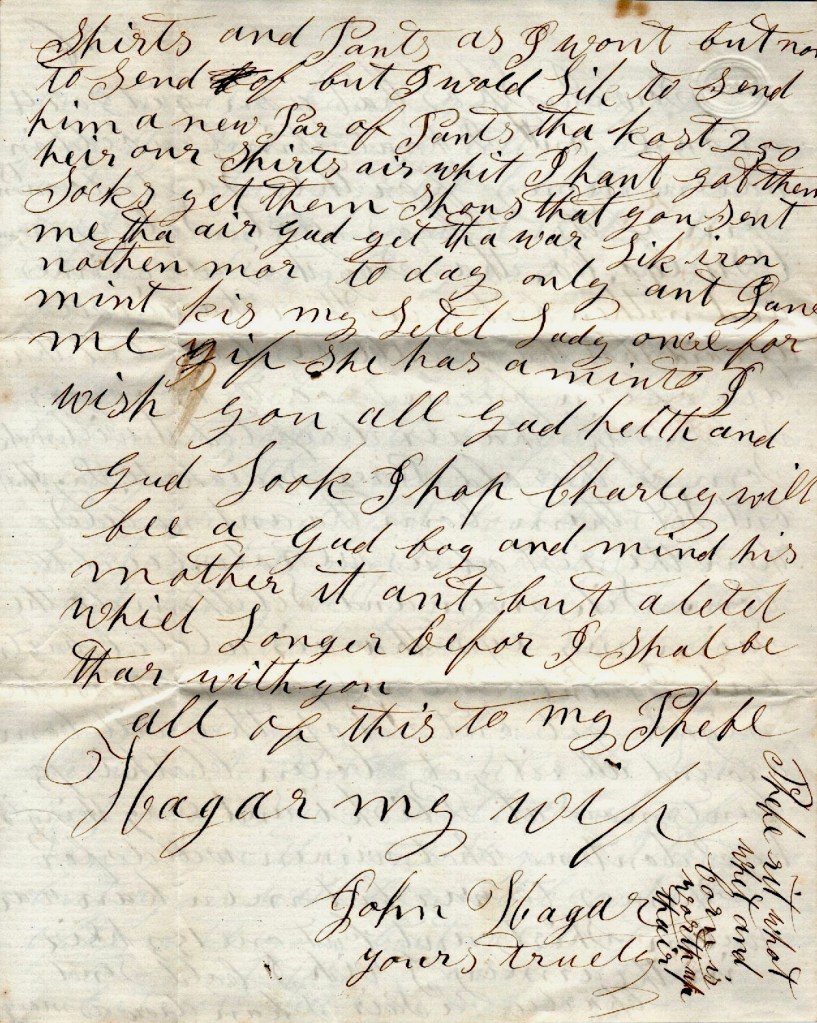 Shirts and Pants as I wont but not
to send of but I wold Lik to send
him a new Par of Pants tha kost 250
heir our Shirts air whit I hant got them
Socks yet them Shous that you sent
me tha air gud yet tha war Lik iron
nothen mor to day only ant Jane
mint kis my Letel Lady once for
me if She has a mind to I
wish you all gud helth and
gud Look I hop Charley will
bee a gud boy and mind his
mother it ant but a letel
whiel Longer befor I Shal be
thar with you
all of this to my Phebe
Hagar my wif
John Hagar
yours truely
Phebe rit what
whet and
corn is
worth up
thair